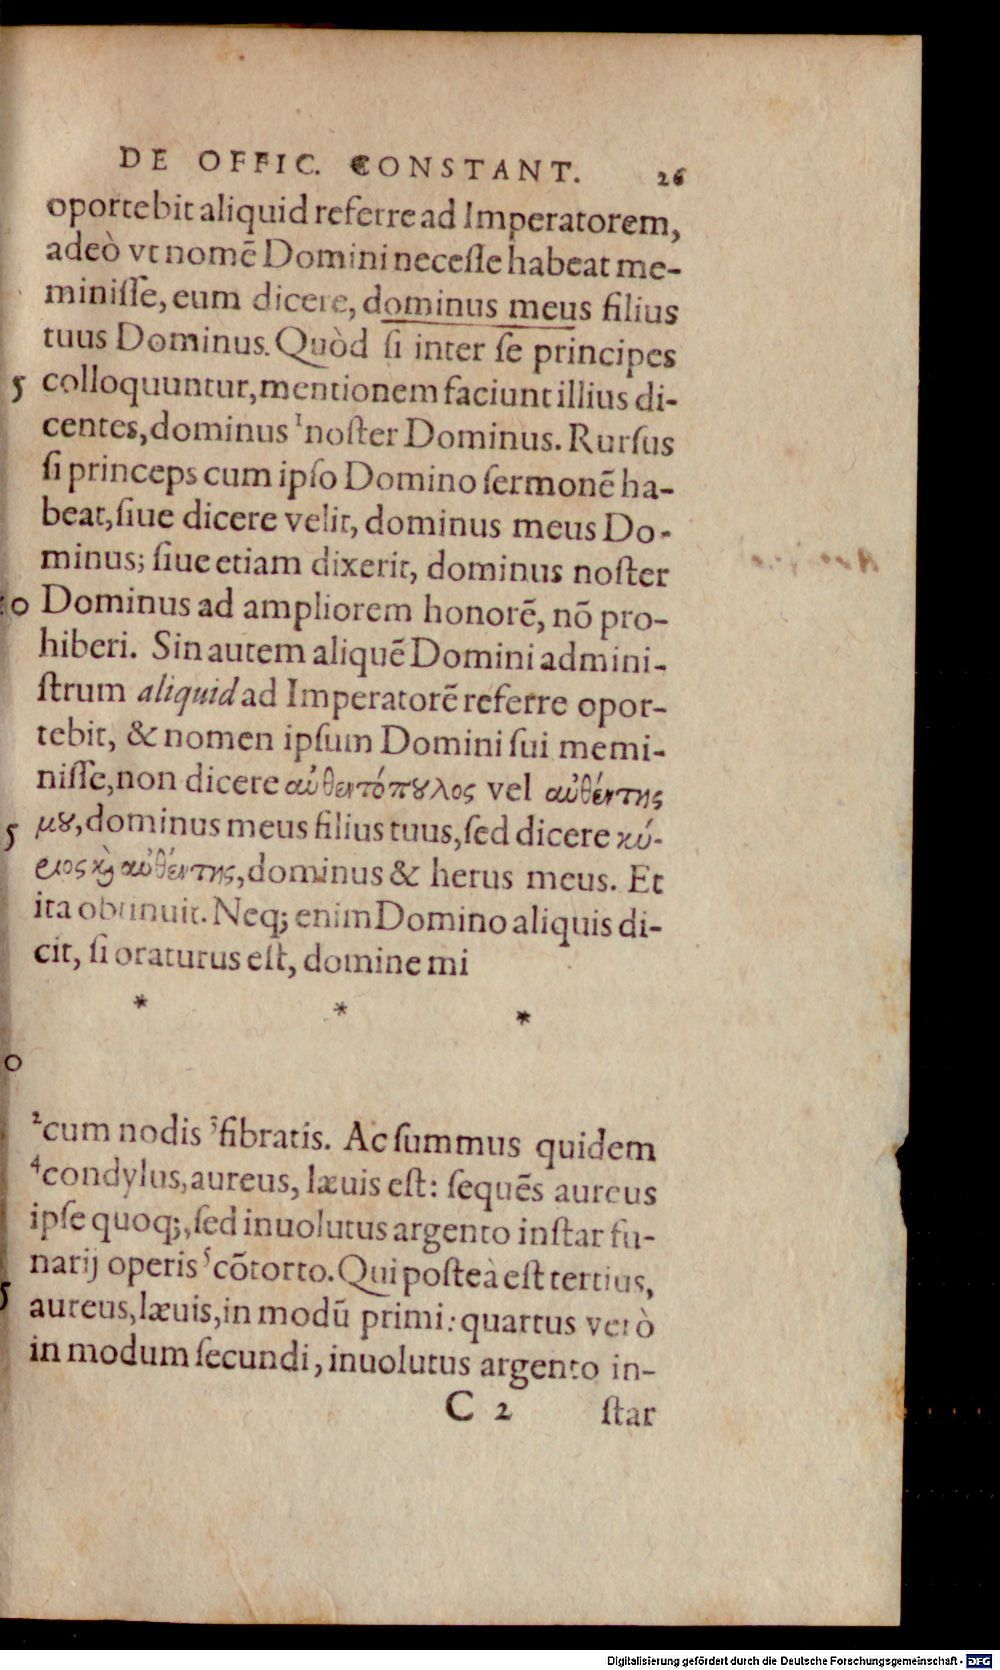 DE OFFIC. CONSTANT. 26
oportebit aliquid referre ad Imperatorem,
adeò vt nomē Domini necesſe habeat me-
miniſſe, eum dicere, dominus meus filius
tuus Dominus. Quòd ſi inter ſe principes
5 colloquuntur, mentionem faciunt illius di-
centes, dominus ¹noſter Dominus. Rurſus
ſi princeps cum ipſo Domino ſermonē ha-
beat, ſiue dicere velit, dominus meus Do-
minus; ſiue etiam dixerit, dominus noſter
10 Dominus ad ampliorem honorē, nō pro-
hiberi. Sin autem aliquē Domini admini-
ſtrum aliquid ad Imperatorē referre opor-
tebit, & nomen ipſum Domini ſui memi-
niſſe, non dicere αὐθεντόπȣλος vel αὐθέντης
5 μȣ, dominus meus filius tuus, ſed dicere κύ-
ριος ϗ̀ αὐθέντης, dominus & herus meus. Et
ita obtinuit. Neq; enim Domino aliquis di-
cit, ſi oraturus eſt, domine mi
* * *
0
²cum nodis ³fibratis. Ac ſummus quidem
⁴condylus, aureus, læuis eſt: ſequēs aureus
ipſe quoq;, ſed inuolutus argento inſtar fu-
narij operis ⁵cōtorto. Qui poſteà eſt tertius,
5 aureus, læuis, in modū primi: quartus verò
in modum ſecundi, inuolutus argento in-
C 2 ſtar
Digitalisierung gefördert durch die Deutsche Forschungsgemeinschaft - DFG